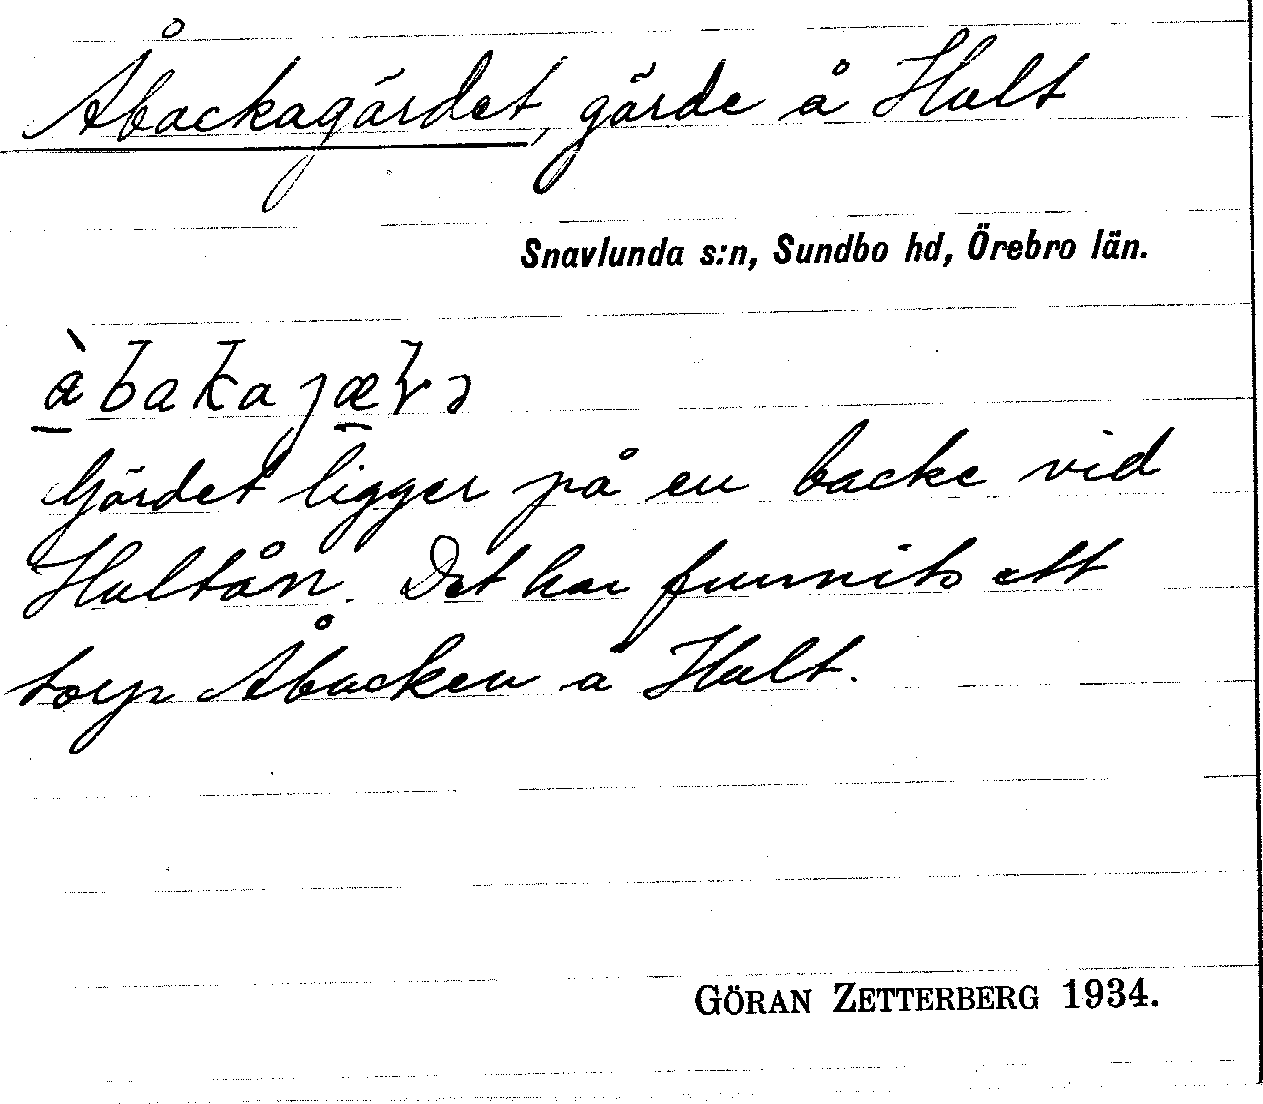 Åbackagärdet, gärde å Hult
Snavlunda s:n, Sundbo hd, Örebro län.
Gärdet ligger på en backe vid
Hultån. Det har funnits ett
torp Åbacken å Hult.
GÖRAN ZETTERBERG 1934.